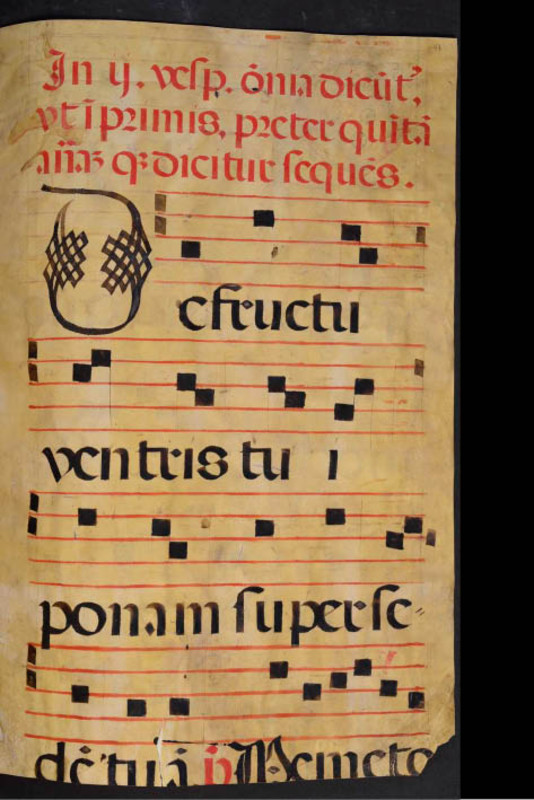 In ij. vesp. oĩa dicũt᷑,
vt ĩ primis, preter quĩtã
añaȝ qȝ dicitur sequẽs.
De fructu
ventris tu i
ponam super se-
dẽ tuã ꝟ Memeto